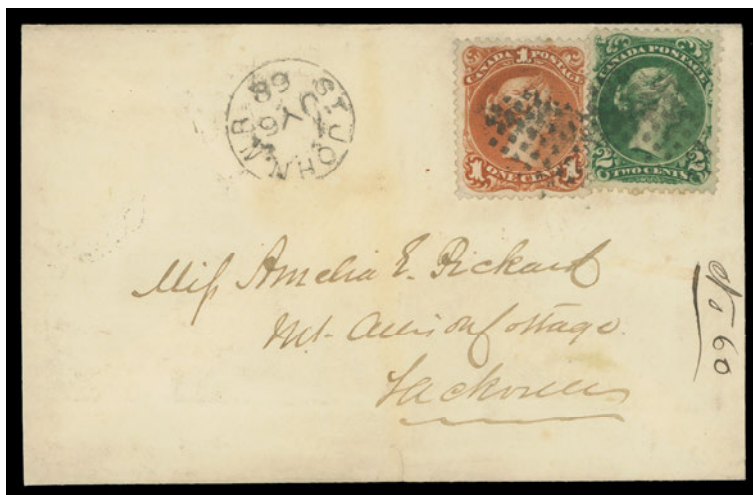 ST. JOHN N.B.
JY 6
68
CANADA POSTAGE
1
1 ONE CENT 1
CANADA POSTAGE
2 TWO CENTS 2
Miss Amelia E. Pickard
Mt. Allison Cottage.
Sackville
60